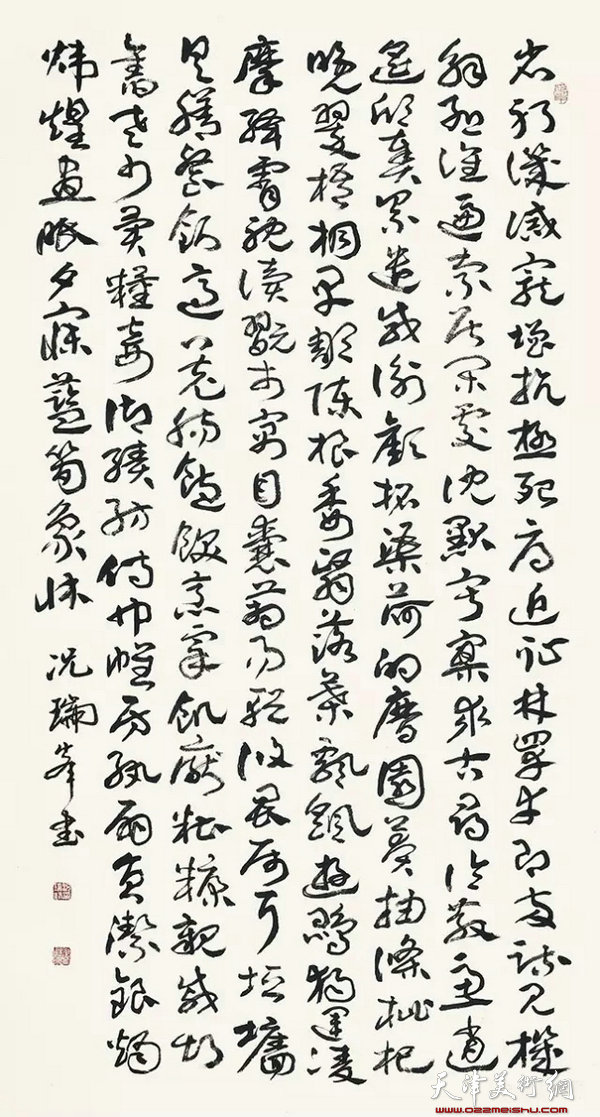 省躬譏誡寵增抗極殆辱近恥林皋幸即兩疏見機
解組誰逼索居閑處沈默寂寥求古尋論散慮逍
遙欣奏累遣慼謝歡招渠荷的歷園莽抽條枇杷
晚翠梧桐早凋陳根委翳落葉飄颻遊鵾獨運凌
摩絳霄耽讀翫市寓目囊箱易輶攸畏屬耳垣牆
具膳餐飯適口充腸飽飫烹宰飢厭糟糠親戚故
舊老少異糧妾御績紡侍巾帷房紈扇員潔銀燭
煒煌晝眠夕寐藍筍象床 況瑞峰書
天津美術網
www.022meishu.com